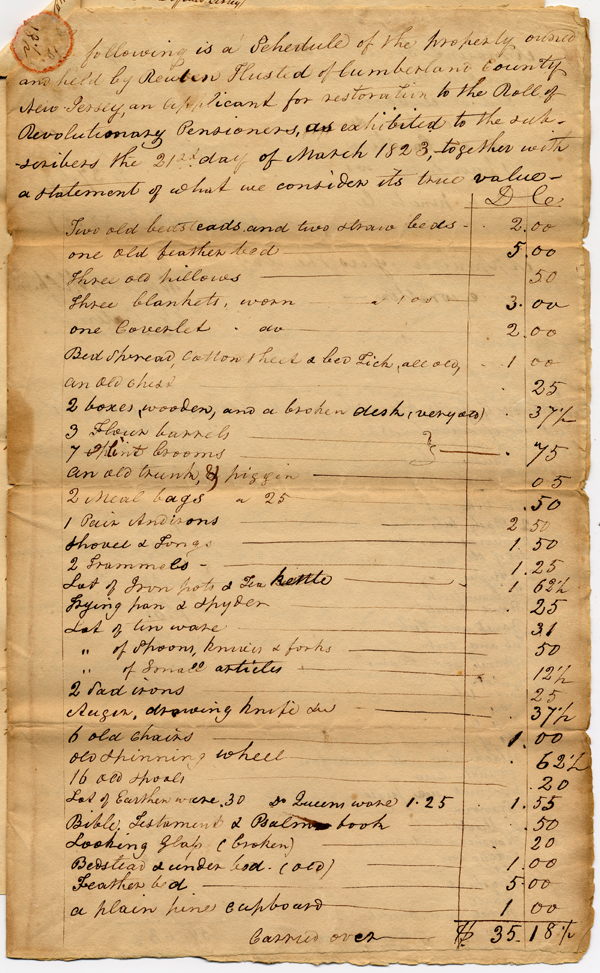 following is a Schedule of the property owned
and held by Reuben Husted of Cumberland County
New Jersey, an applicant for restoration to the Roll of
Revolutionary Pensioners, as exhibited to the sub-
-scribers the 21st day of March 1823, together with
a statement of what we consider its true value -
D C
Two old bedsteads and two straw beds - 2.00
one old feather bed 5.00
Three old pillows 50
Three blankets, worn a 100 3.00
one Coverlet . do 2.00
Bed Spread, Cotton Sheet & bed Tick, all old, 1 00
an old chest .25
2 boxes, wooden, and a broken desk (very old) . 37½
3 Flour barrels
7 Splint brooms . 75
an old trunk, & piggin 05
2 Meal bags a 25 .50
1 Pair Andirons 2 50
Shovel & Tongs 1.50
2 Trammels - 1.25
Lot of Iron pots & Tea kettle 1 62½
Frying pan & Spyder 25
Lot of tin ware 31
" of Spoons, knives & forks 50
" of Small articles 12½
2 Sad irons 25
Auger, drawing knife &c 37½
6 old chairs 1.00
old Spinning wheel . 62½
16 old Spools .20
Lot of Earthen ware .30 Do Queens ware 1.25 1.55
Bible, Testament & Psalm book .50
Looking Glass (broken) 20
Bedstead & under bed. (old) 1.00
Feather bed . 5.00
a plain pine cupboard 1 00
Carried over $ 35.18½